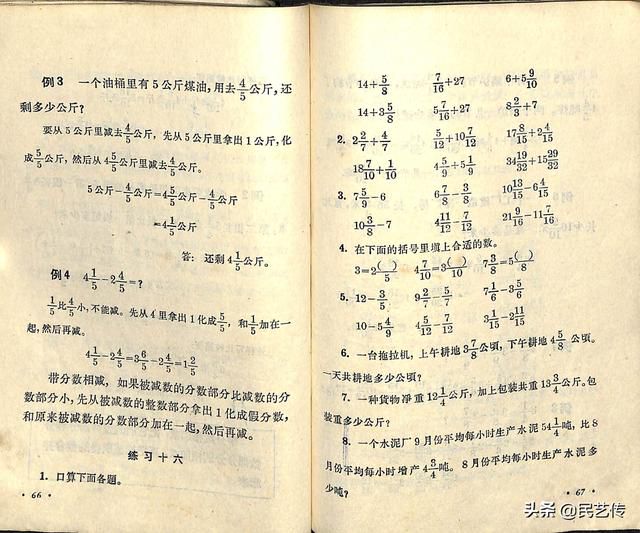 例3 一个油桶里有5公斤煤油,用去4/5公斤,还
剩多少公斤?
要从5公斤里减去4/5公斤,先从5公斤里拿出1公斤,化
成5/5公斤,然后从4 5/5公斤里减去4/5公斤。
5公斤-4/5公斤=4 5/5公斤-4/5公斤
=4 1/5公斤
答: 还剩4 1/5公斤。
例4 4 1/5-2 4/5=?
1/5比4/5小,不能减。先从4里拿出1化成5/5,和1/5加在一
起,然后再减。
4 1/5-2 4/5=3 6/5-2 4/5=1 2/5
带分数相减,如果被减数的分数部分比减数的分
数部分小,先从被减数的整数部分拿出1化成假分数,
和原来被减数的分数部分加在一起,然后再减。
练习十六
1. 口算下面各题。
· 66 ·
14+5/8 7/16+27 6+5 9/10
14+3 5/8 5 7/16+27 8 2/3+7
2. 2 2/7+4/7 5/12+10 7/12 17 8/15+2 4/15
18 7/10+1/10 4 5/9+5 1/9 34 19/32+15 29/32
3. 7 5/9-6 6 7/8-3/8 10 13/15-6 4/15
10 3/8-7 4 11/12-7/12 21 9/16-11 7/16
4. 在下面的括号里填上合适的数。
3=2( )/5 4 7/10=3( )/10 7 3/8=5( )/8
5. 12-3/5 9 2/7-5/7 7 1/6-3 5/6
10-5 4/9 4 5/12-7/12 3 1/15-2 11/15
6. 一台拖拉机,上午耕地3 7/8公顷,下午耕地4 5/8公顷。
一天共耕地多少公顷?
7. 一种货物净重12 1/4公斤,加上包装共重13 3/4公斤。包
装重多少公斤?
8. 一个水泥厂9月份平均每小时生产水泥54 1/4吨,比8
月份平均每小时增产4 3/4吨。8月份平均每小时生产水泥多
少吨?
· 67 ·
头条 @民艺传